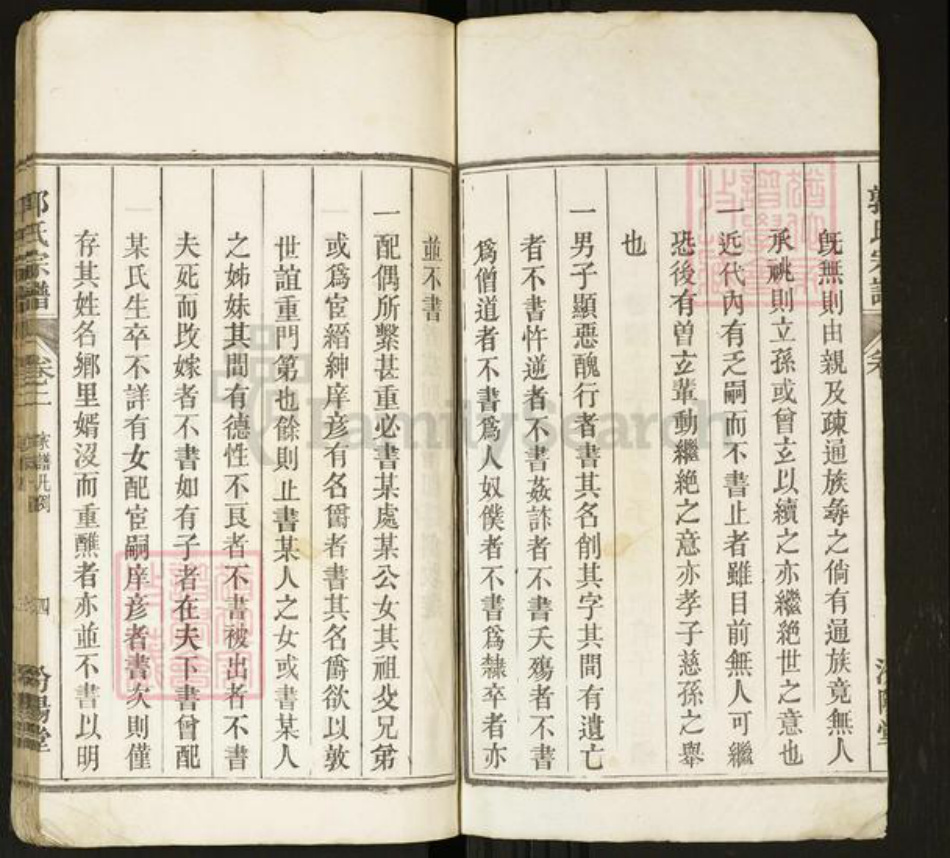 既無則由親及疎通族尋之倘有通族竟無人
承祧則立孫或曾玄以續之亦繼絕世之意也
一近代內有乏嗣而不書止者雖目前無人可繼
恐後有曾玄輩動繼絕之意亦孝子慈孫之舉
也
一男子顯惡醜行者書其名削其字其間有遺亡
者不書忤逆者不書姦詐者不書夭殤者不書
爲僧道者不書爲人奴僕者不書爲隸卒者亦
並不書
一配偶所繫甚重必書某處某公女其祖父兄弟
或爲宦縉紳庠彥有名爵者書其名爵欲以敦
世誼重門第也餘則止書某人之女或書某人
之姊妹其間有德性不良者不書被出者不書
夫死而改嫁者不書如有子者在夫下書曾配
某氏生卒不詳有女配宦嗣庠彥者書次則僅
存其姓名鄉里婿沒而重醮者亦並不書以明
郭氏宗譜
卷二
家譜凡例
四
汾陽堂
FamilySearch